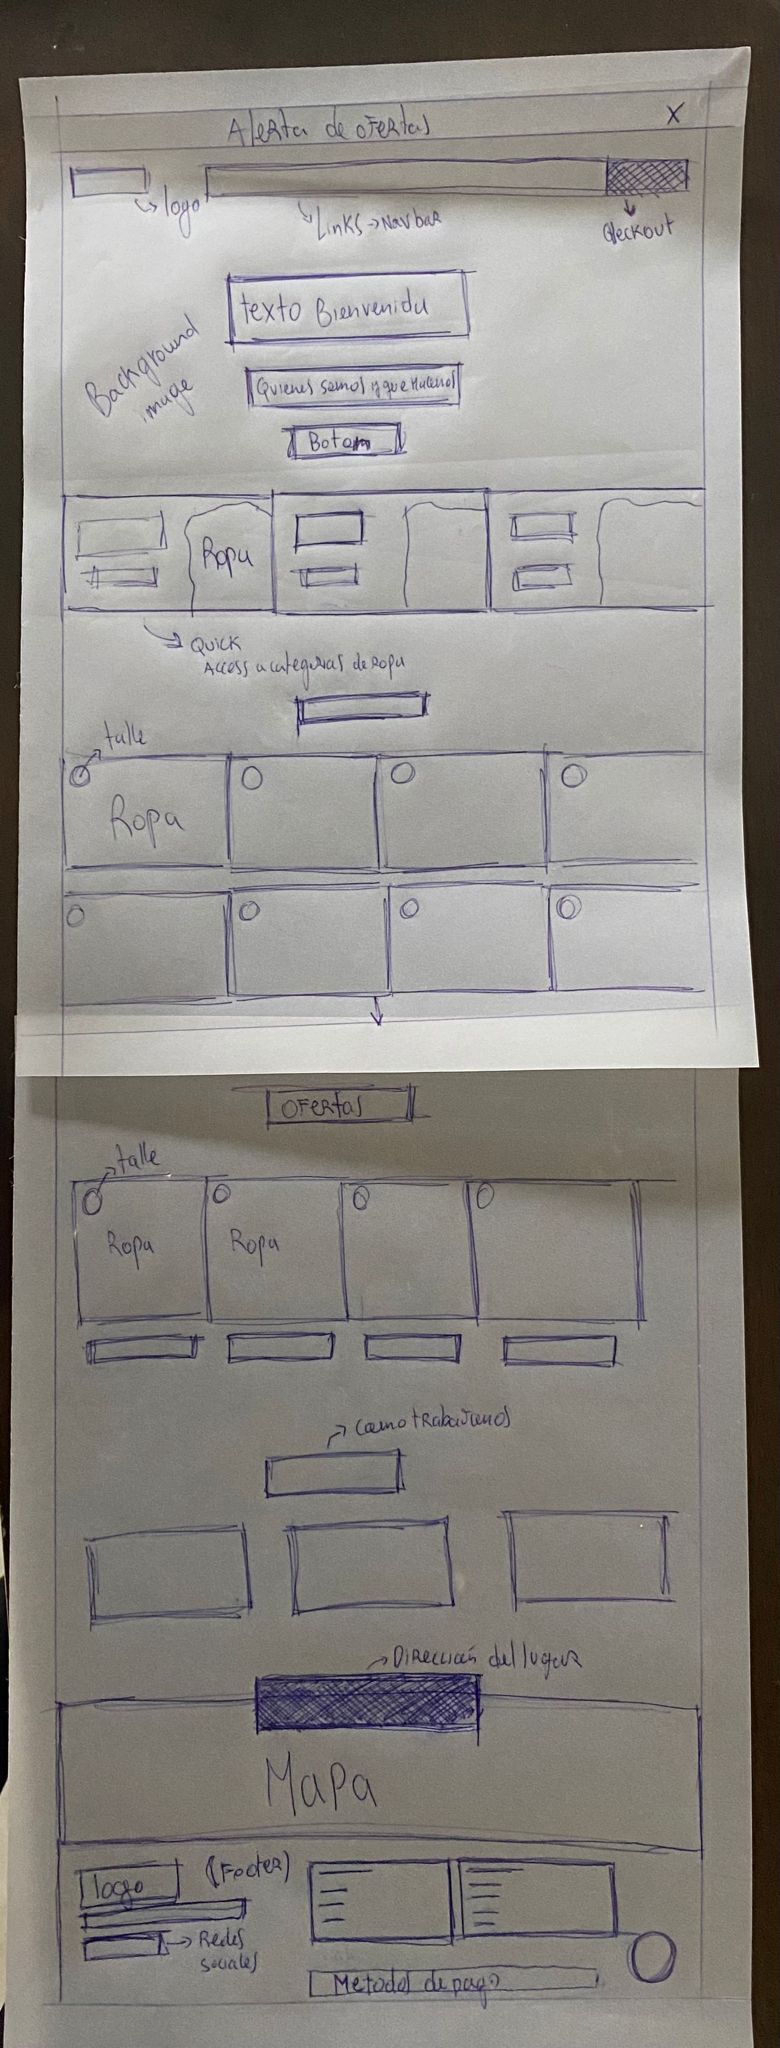 Alerta de ofertas X
logo
Links → Navbar
Checkout
texto Bienvenida
Background
image
Quienes somos y que Hacemos
Boton
Ropa
Quick
Access a categorias de Ropa
talle
Ropa
Ofertas
talle
Ropa Ropa
Como trabajamos
Dirección del lugar
Mapa
logo (Footer)
Redes
sociales
Metodos de pago